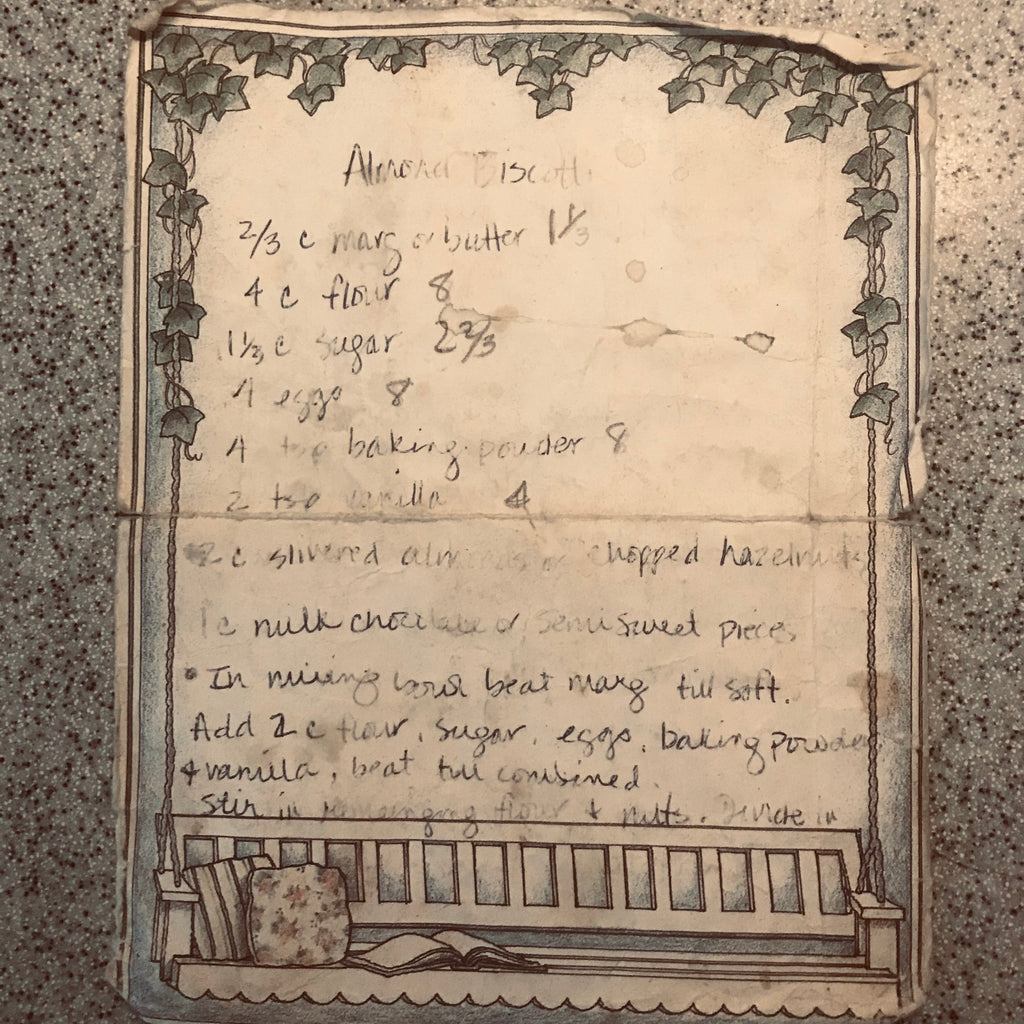 Almond Biscotti
2/3 c marg or butter 1 1/3
4 c flour 8
1 1/3 c sugar 2 2/3
4 eggs 8
4 tsp baking powder 8
2 tsp vanilla 4
2 c slivered almonds or chopped hazelnuts
1 c milk chocolate or semi sweet pieces
• In mixing bowl beat marg till soft.
Add 2 c flour, sugar, eggs, baking powder
+ vanilla, beat till combined.
Stir in remainging flour + nuts. Divide in